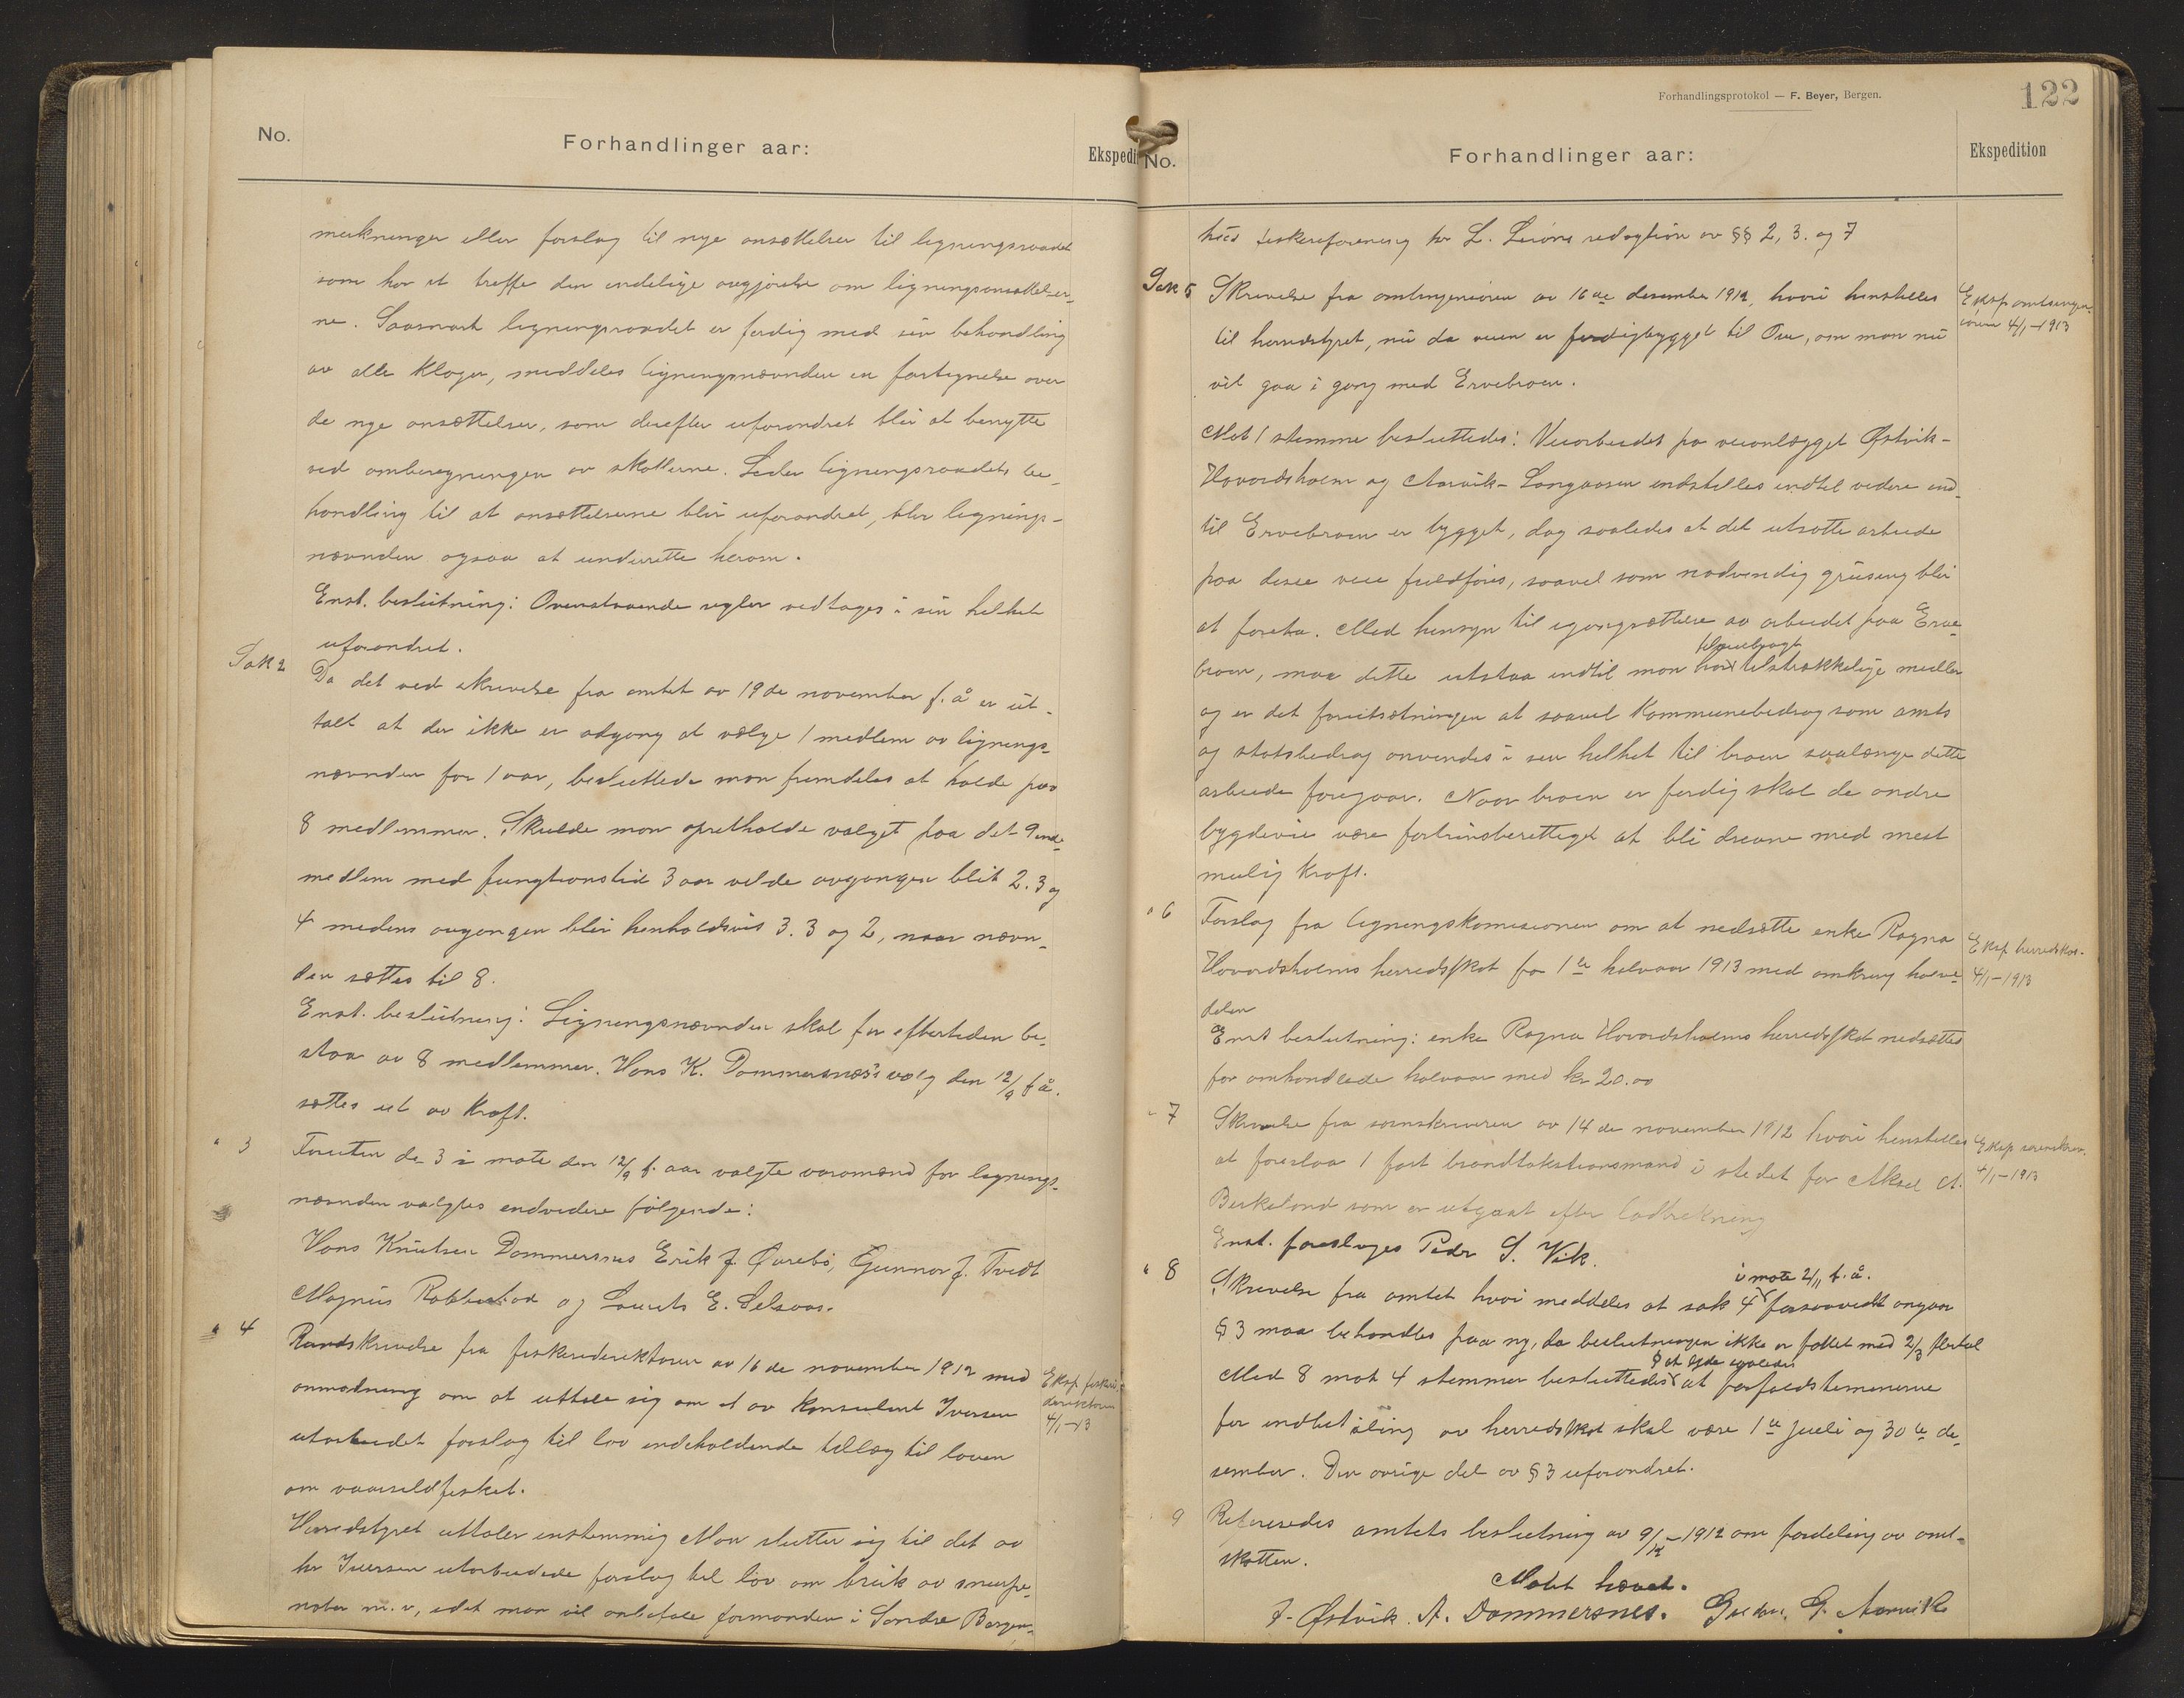 No.
Forhandlinger aar:
Ekspedi
merkninger eller forslag til nye ansættelser til ligningsraadet
som har at treffe den endelige avgjørelse om ligningsansættelser-
ne. Saasnart ligningsraadet er ferdig med sin behandling
av alle klager, meddeles ligningsnævnden en fortegnelse over
de nye ansættelser, som derefter uforandret blir at benytte
ved omberegningen av skatterne. Leder ligningsraadets be-
handling til at ansættelserne blir uforandret, blir lignings-
nævnden ogsaa at underrette herom.
Enst. beslutning: Ovenstaaende regler vedtages i sin helhet
uforandret.
Sak 2
Da det ved skrivelse fra amtet av 19de november f. å er ut-
talt at der ikke er adgang at vælge 1 medlem av lignings-
nævnden for 1 aar, besluttede man fremdeles at holde paa
8 medlemmer. Skulde man opretholde valget paa det 9ende
medlem med fungtionstid 3 aar vilde avgangen blit 2. 3 og
4 medens avgangen blir henholdsvis 3. 3 og 2, naar nævn-
den sættes til 8.
Enst. beslutning: Ligningsnævnden skal for eftertiden be-
staa av 8 medlemmer. Hans K. Dommersnes's valg den 12/9 f å.
sættes ut av kraft.
" 3
Foruten de 3 i møte den 12/9 f. aar valgte varamænd for lignings-
nævnden valgtes endvidere følgende:
Hans Knutsen Dommersnes Erik J. Øvrebö, Gunnar J. Tvedt
Magnus Rabbestad og Laurits E. Selsaas.
" 4
Rundskrivelse fra fiskeridirektøren av 16de november 1912 med
anmodning om at uttale sig om et av konsulent Iversen
utarbeidet forslag til lov indeholdende tillæg til loven
om vaarsildfisket.
Eksp. fiskeri-
direktøren
4/1-13
Herredstyret uttaler enstemmig Man slutter sig til det av
hr Iversen utarbeidede forslag til lov om bruk av snurpe-
nøter m. v, idet man vil anbefale formanden i Søndre Bergen-
Forhandlingsprotokol — F. Beyer, Bergen.
122
No.
Forhandlinger aar:
Ekspedition
hus fiskeriforening hr L. redagtion av §§ 2, 3. og 7
Sak 5
Skrivelse fra amtsingeniøren av 16de desember 1912, hvori henstilles
til herredstyret, nu da veien er ferdigbygget til Øen, om man nu
vil gaa i gang med Ervebroen.
Eksp. amtsingen-
iøren 4/1-1913
Mot 1 stemme besluttedes: Veiarbeidet paa veianlægget Østvik-
Hovordsholm og Aarvik- Langaasen indstilles indtil videre ind-
til Ervebroen er bygget, dog saaledes at det utsatte arbeide
paa disse veie fuldføres, saavel som nødvendig grusing blir
at foreta. Med hensyn til igangsættelse av arbeidet paa Erve-
tilveiebragt
broen, maa dette utstaa indtil man har tilstrækkelige midler
og er det forutsætningen at saavel kommunebidrag som amts
og statsbidrag anvendes i sin helhet til broen saalænge dette
arbeide foregaar. Naar broen er ferdig skal de andre
bygdeveie være fortrinsberettiget at bli drevne med mest
mulig kraft.
" 6
Forslag fra ligningskomisionen om at nedsætte enke Ragna
Hovordsholms herredsskat for 1ste halvaar 1913 med omkring halv-
delen
Eksp herredskas.
4/1-1913
Enst beslutning: enke Ragna Hovordsholms herredsskat nedsættes
for omhandlede halvaar med kr 20.00
" 7
Skrivelse fra sorenskriveren av 14de november 1912 hvori henstilles
at foreslaa 1 fast brandtakstionsmand i stedet for Aksel A.
Birkeland som er utgaat efter lodtrekning
Eksp sorenskriv.
4/1-1913
Enst. foreslages Peder S. Vik.
" 8
i møte 2/11 f. å.
Skrivelse fra amtet hvori meddeles at sak 4 forsaavidt angaar
§ 3 maa behandles paa ny, da beslutningen ikke er fattet med 2/3 flertal
§ at lyde saaledes
Med 8 mot 4 stemmer besluttedes at forfaldsterminerne
for indbetaling av herredsskat skal være 1ste juli og 30te de-
sember. Den øvrige del av § 3 uforandret.
9
Refereredes amtets beslutning av 9/12-1912 om fordeling av amt-
skatten.
Møtet hævet.
J. Østvik. A. Dommersnes. G. Aarvik